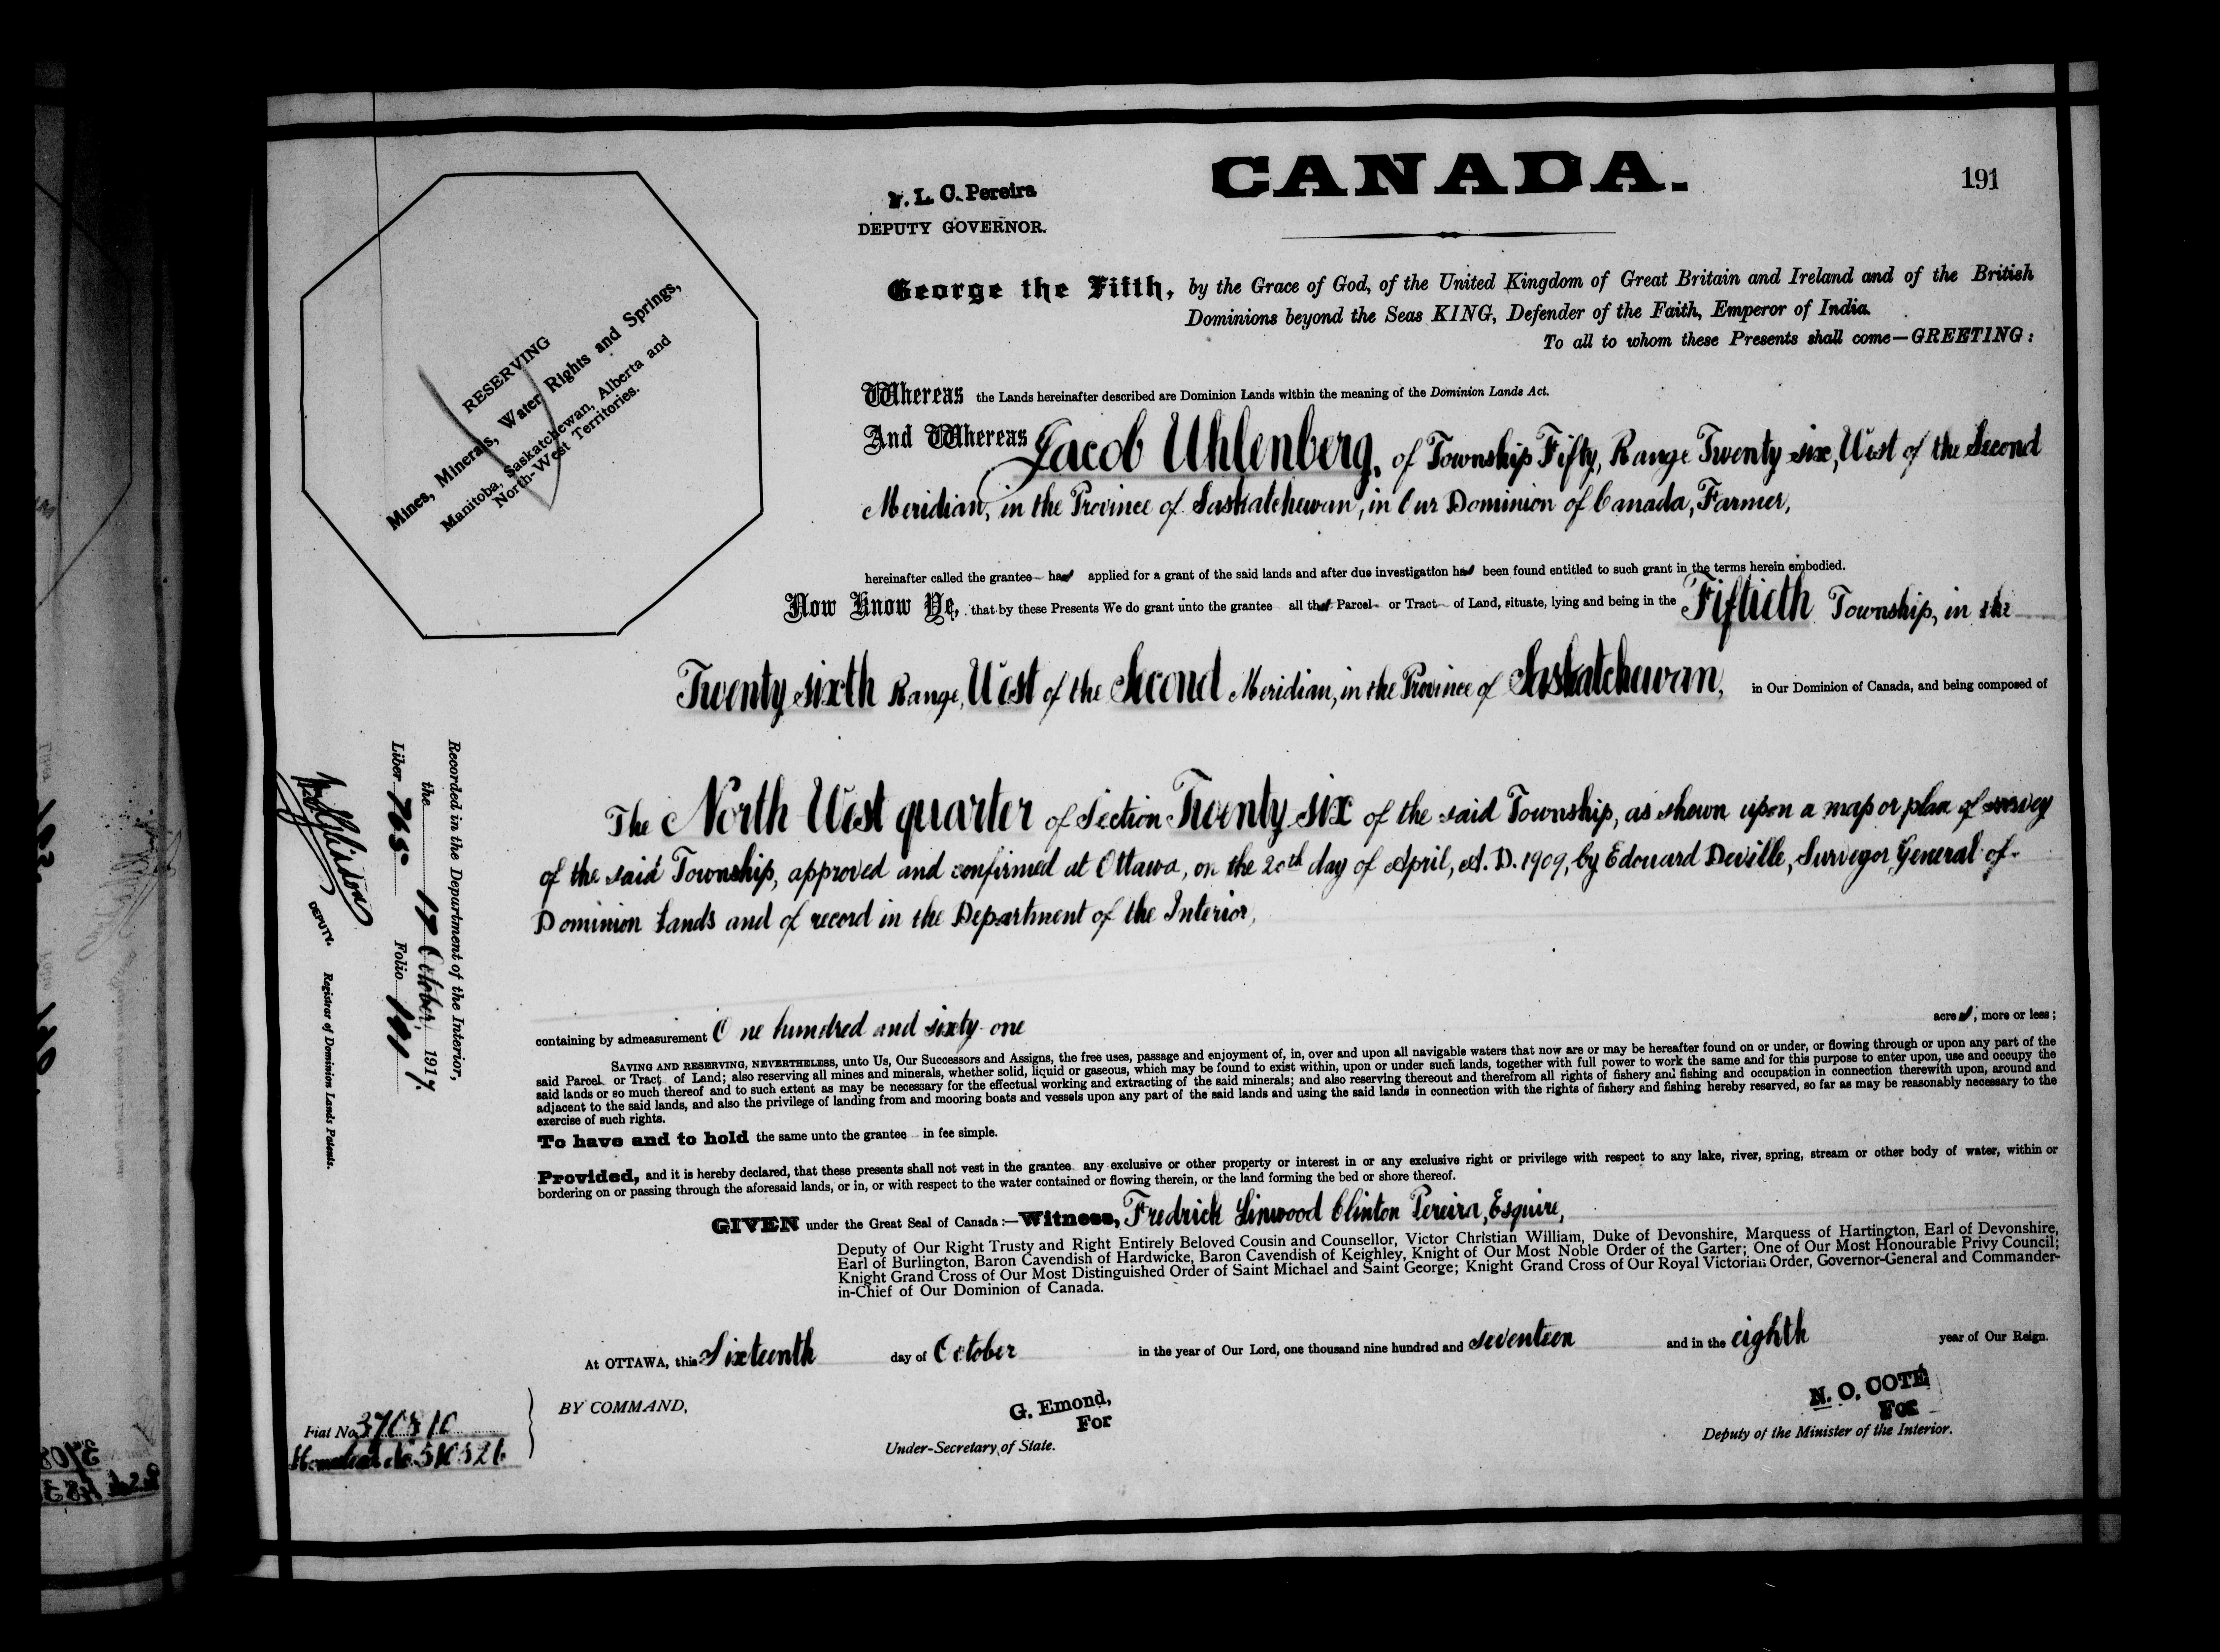 CANADA.
191
F. L. C. Pereira
DEPUTY GOVERNOR.
George the Fifth, by the Grace of God, of the United Kingdom of Great Britain and Ireland and of the British
Dominions beyond the Seas KING, Defender of the Faith, Emperor of India.
To all to whom these Presents shall come—GREETING:
RESERVING
Mines, Minerals, Water Rights and Springs,
Manitoba, Saskatchewan, Alberta and
North-West Territories.
Whereas the Lands hereinafter described are Dominion Lands within the meaning of the Dominion Lands Act.
And Whereas Jacob Uhlenberg, of Township Fifty, Range Twenty six, West of the Second
Meridian, in the Province of Saskatchewan, in Our Dominion of Canada, Farmer,
hereinafter called the grantee has applied for a grant of the said lands and after due investigation has been found entitled to such grant in the terms herein embodied.
Now Know Ye, that by these Presents We do grant unto the grantee all that Parcel or Tract of Land, situate, lying and being in the Fiftieth Township, in the
Twenty sixth Range, West of the Second Meridian, in the Province of Saskatchewan, in Our Dominion of Canada, and being composed of
The North West quarter of Section Twenty six of the said Township, as shown upon a map or plan of survey
of the said Township, approved and confirmed at Ottawa, on the 20th day of April, A. D. 1909, by Edouard Deville, Surveyor General of
Dominion Lands and of record in the Department of the Interior,
containing by admeasurement One hundred and sixty one acres, more or less;
SAVING AND RESERVING, NEVERTHELESS, unto Us, Our Successors and Assigns, the free uses, passage and enjoyment of, in, over and upon all navigable waters that now are or may be hereafter found on or under, or flowing through or upon any part of the
said Parcel or Tract of Land; also reserving all mines and minerals, whether solid, liquid or gaseous, which may be found to exist within, upon or under such lands, together with full power to work the same and for this purpose to enter upon, use and occupy the
said lands or so much thereof and to such extent as may be necessary for the effectual working and extracting of the said minerals; and also reserving thereout and therefrom all rights of fishery and fishing and occupation in connection therewith upon, around and
adjacent to the said lands, and also the privilege of landing from and mooring boats and vessels upon any part of the said lands and using the said lands in connection with the rights of fishery and fishing hereby reserved, so far as may be reasonably necessary to the
exercise of such rights.
To have and to hold the same unto the grantee in fee simple.
Provided, and it is hereby declared, that these presents shall not vest in the grantee any exclusive or other property or interest in or any exclusive right or privilege with respect to any lake, river, spring, stream or other body of water, within or
bordering on or passing through the aforesaid lands, or in, or with respect to the water contained or flowing therein, or the land forming the bed or shore thereof.
GIVEN under the Great Seal of Canada:—Witness, Fredrick Linwood Clinton Pereira, Esquire,
Deputy of Our Right Trusty and Right Entirely Beloved Cousin and Counsellor, Victor Christian William, Duke of Devonshire, Marquess of Hartington, Earl of Devonshire,
Earl of Burlington, Baron Cavendish of Hardwicke, Baron Cavendish of Keighley, Knight of Our Most Noble Order of the Garter; One of Our Most Honourable Privy Council;
Knight Grand Cross of Our Most Distinguished Order of Saint Michael and Saint George; Knight Grand Cross of Our Royal Victorian Order, Governor-General and Commander-
in-Chief of Our Dominion of Canada.
At OTTAWA, this Sixteenth day of October in the year of Our Lord, one thousand nine hundred and seventeen and in the eighth year of Our Reign.
BY COMMAND,
G. Emond,
For
Under-Secretary of State.
N. O. COTÉ
For
Deputy of the Minister of the Interior.
Fiat No. 370810
Homestead No. 510526
Recorded in the Department of the Interior,
the 17 October, 1917.
Liber 765 Folio 191
DEPUTY. Registrar of Dominion Lands Patents.